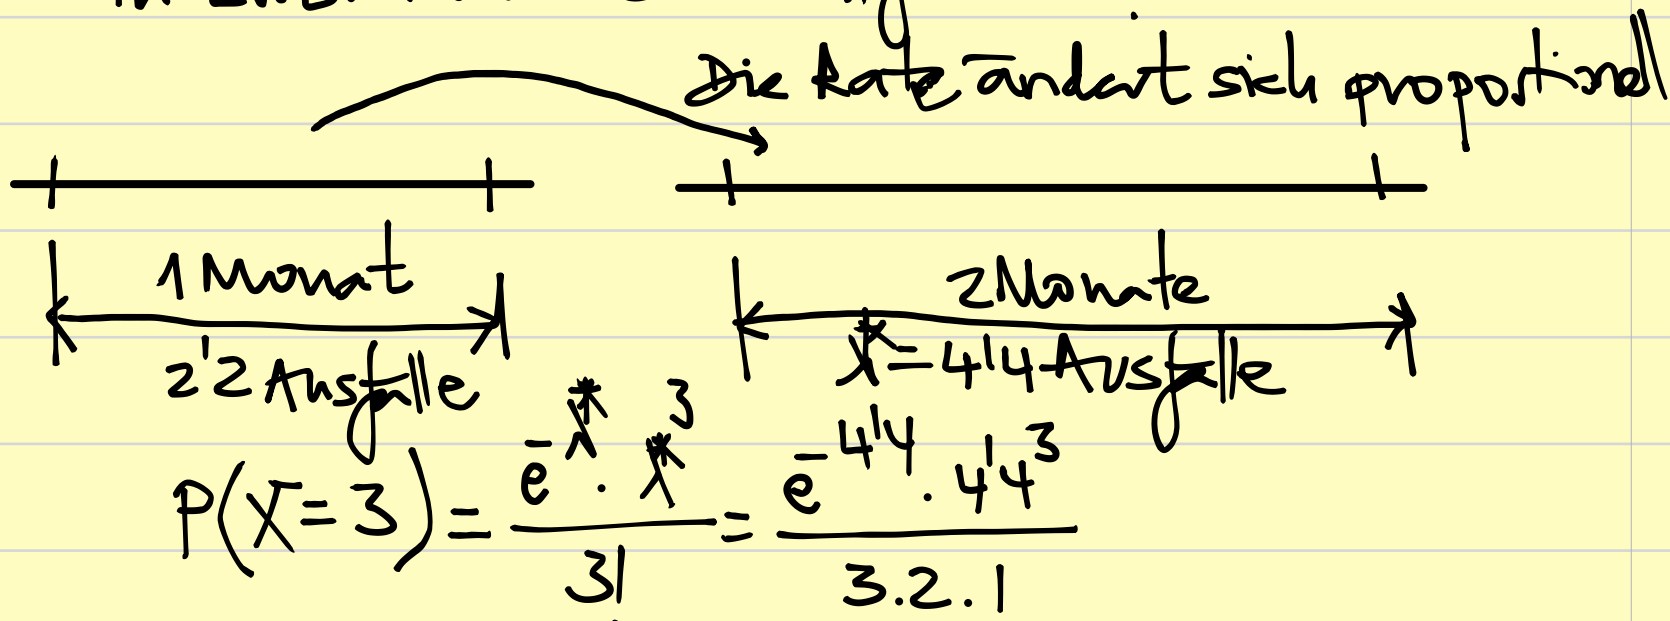 Die Rate ändert sich proportionell
1 Monat 2 Monate
2'2 Ausfälle λ* = 4'4 Ausfälle
P(X = 3) = e^-λ* · λ*^3 / 3! = e^-4'4 · 4'4^3 / 3.2.1